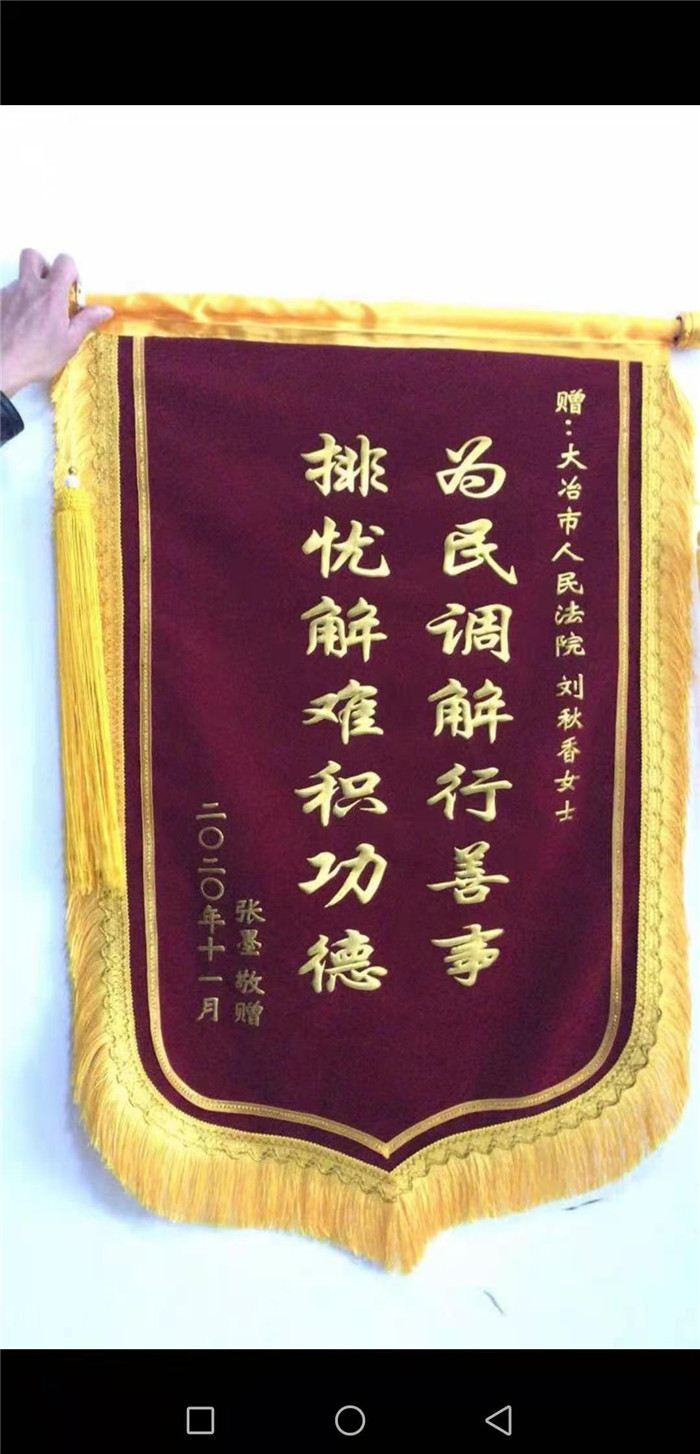 赠：大冶市人民法院 刘秋香女士
为民调解行善事
排忧解难积功德
张墨 敬赠
二〇二〇年十一月